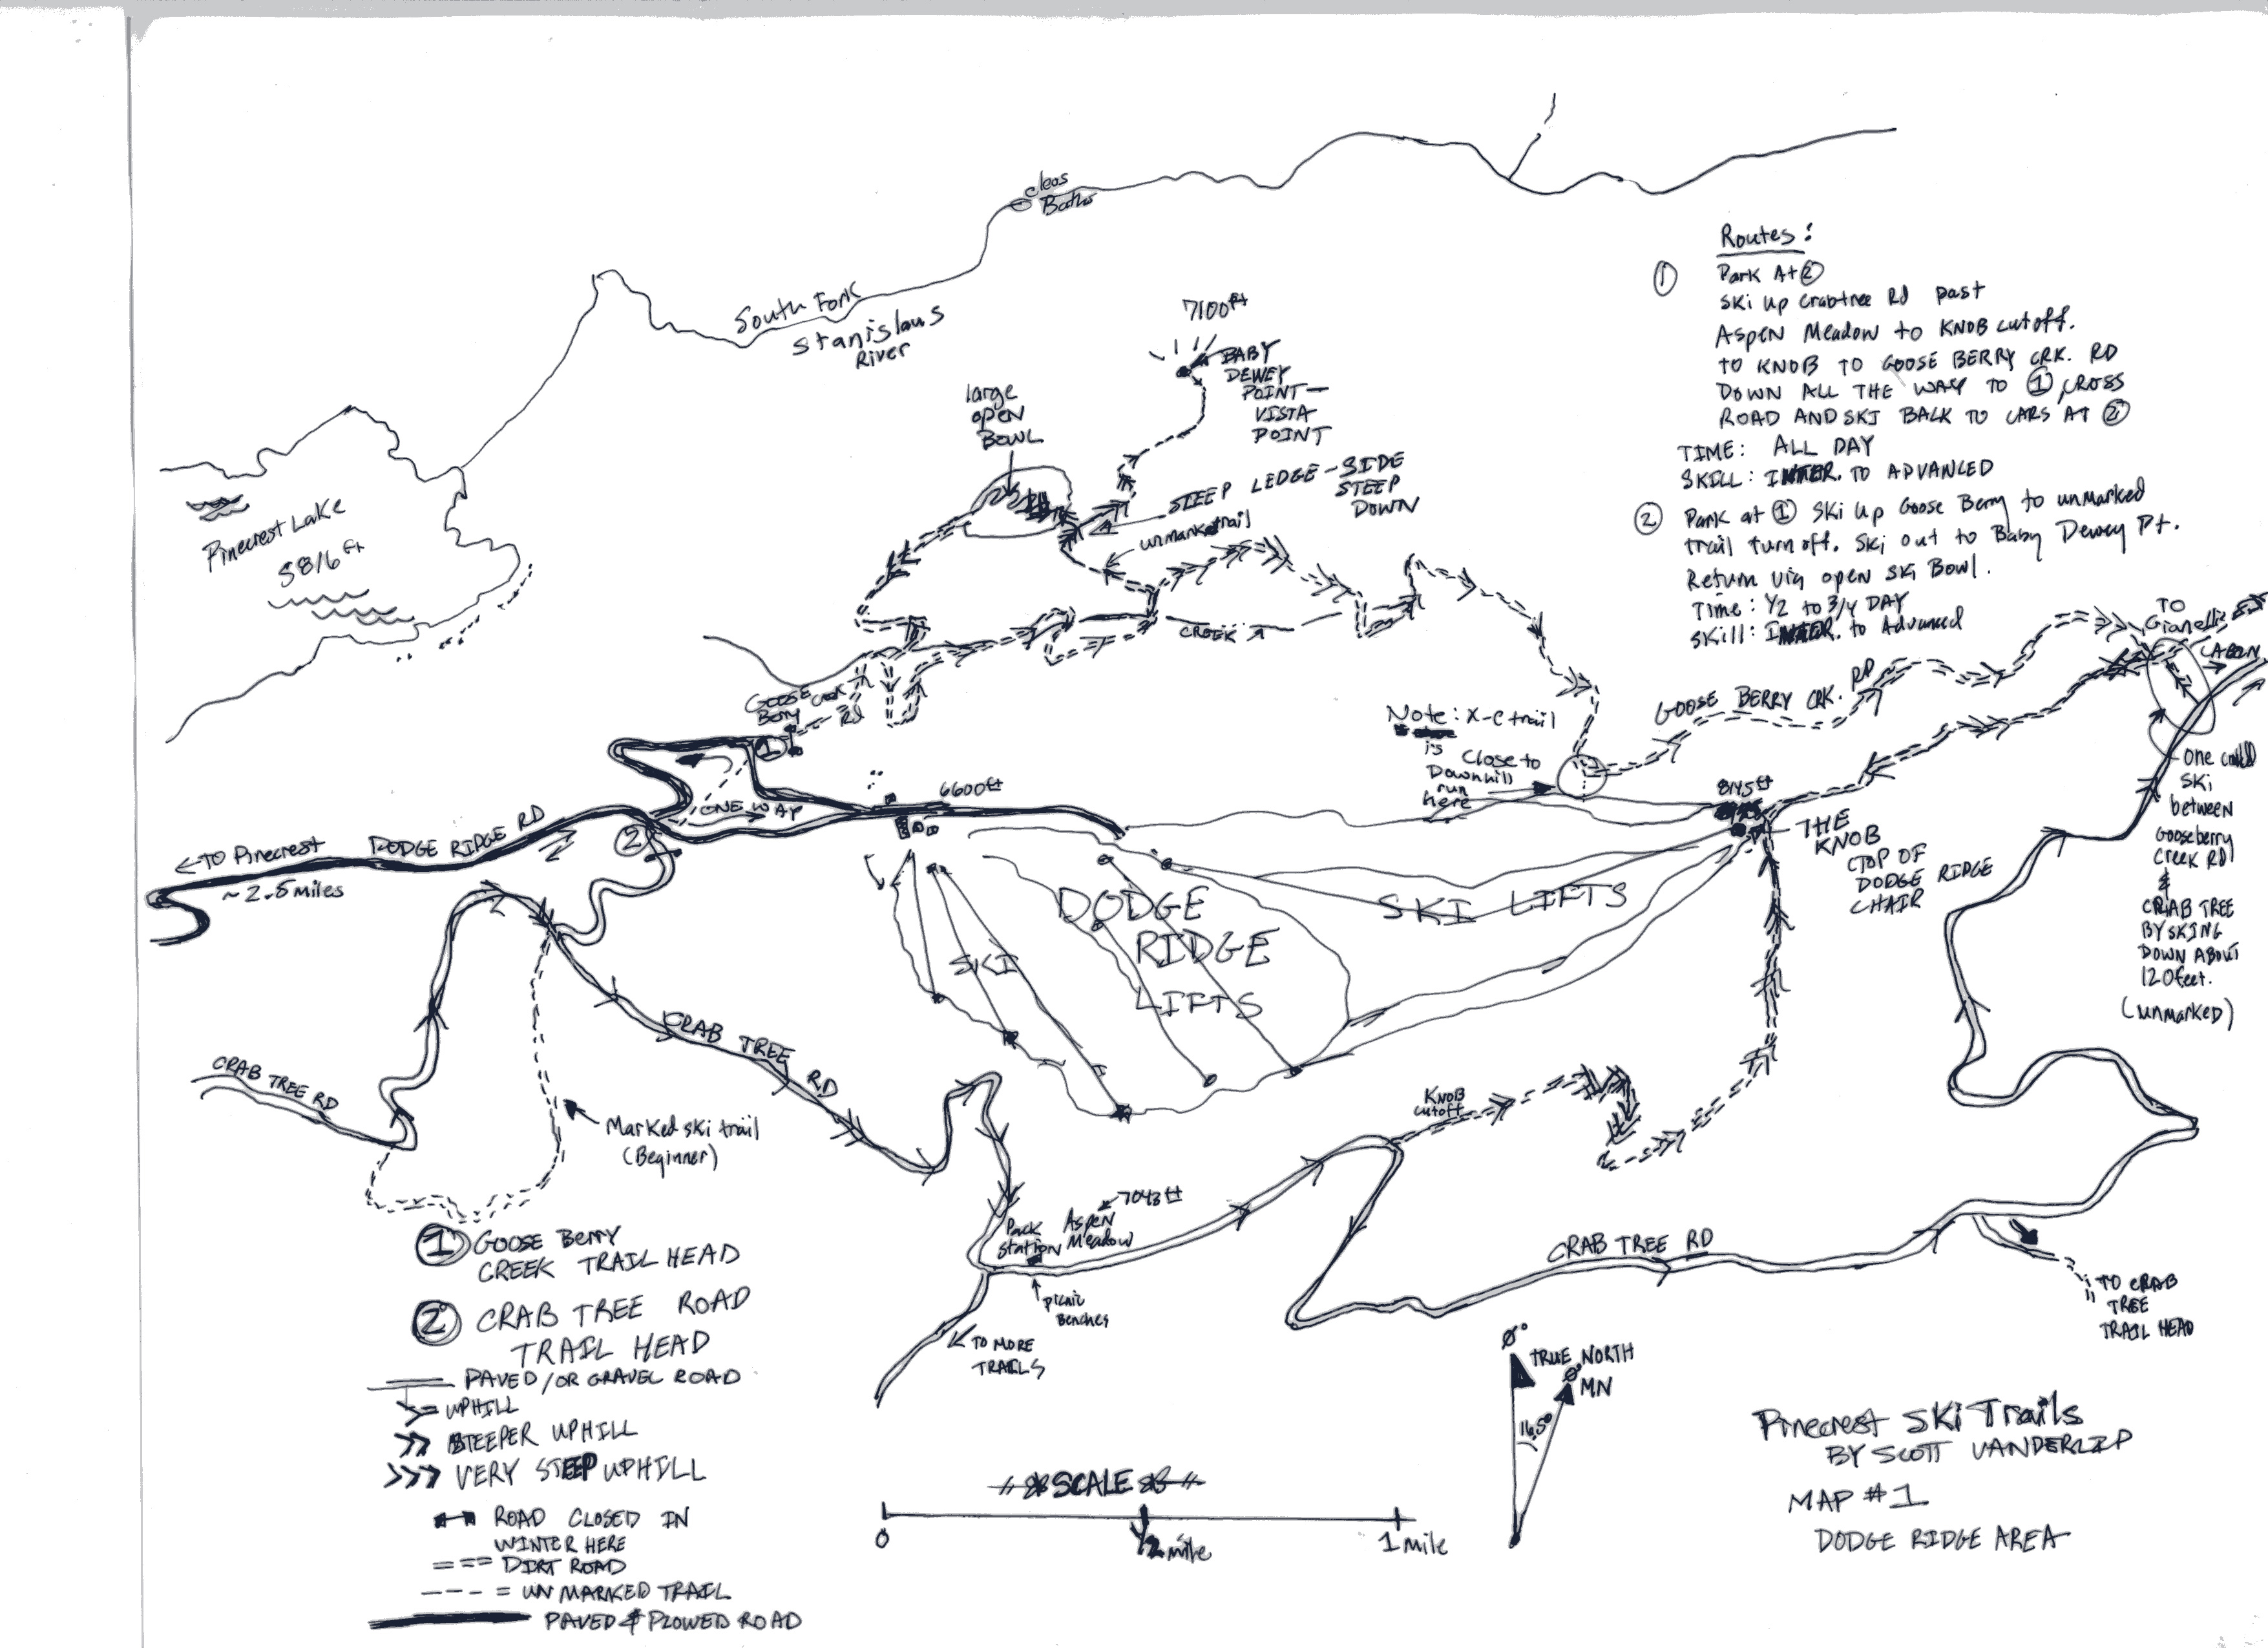 cleos
Baths
South Fork
Stanislaus
River
7100 ft
BABY
DEWEY
POINT—
VISTA
POINT
large
open
BOWL
STEEP LEDGE-SIDE
STEEP
DOWN
Pinecrest Lake
5816 ft
CREEK
Routes:
① Park At ②
Ski up Crabtree Rd past
Aspen Meadow to KNOB cutoff.
TO KNOB TO GOOSE BERRY CRK. RD
DOWN ALL THE WAY TO ①, CROSS
ROAD AND SKI BACK TO CARS AT ②
TIME: ALL DAY
SKILL: INTER. TO ADVANCED
② Park at ① Ski up Goose Berry to unmarked
trail turn off. Ski out to Baby Dewey Pt.
Return via open Ski Bowl.
Time: 1/2 to 3/4 DAY
Skill: INTER. to Advanced
TO
Gianelli
CABIN
GOOSE
Berry
RD
GOOSE BERRY CRK. RD
Note: X-C trail
is
Close to
Downhill
run
here
①
ONE WAY
6600 ft
8145 ft
THE
KNOB
(TOP OF
DODGE RIDGE
CHAIR
One could
SKi
between
Gooseberry
Creek RD
&
CRAB TREE
BY SKING
DOWN ABOUT
120 feet.
(unmarked)
←TO Pinecrest
~2.5 miles
DODGE RIDGE RD
②
DODGE
RIDGE
SKI LIFTS
SKI
LIFTS
CRAB TREE RD
CRAB TREE RD
Marked ski trail
(Beginner)
KNOB
cutoff
7043 ft
Aspen
Meadow
Pack
Station
picnic
Benches
TO MORE
TRAILS
CRAB TREE RD
TO CRAB
TREE
TRAIL HEAD
① GOOSE BERRY
CREEK TRAIL HEAD
② CRAB TREE ROAD
TRAIL HEAD
PAVED/OR GRAVEL ROAD
UPHILL
STEEPER UPHILL
VERY STEEP UPHILL
ROAD CLOSED IN
WINTER HERE
=== DIRT ROAD
---- = UNMARKED TRAIL
PAVED & PLOWED ROAD
SCALE
0 1/2 mile 1 mile
0°
TRUE NORTH
0°
MN
16.5°
Pinecrest Ski Trails
BY SCOTT VANDERLIP
MAP #1
DODGE RIDGE AREA